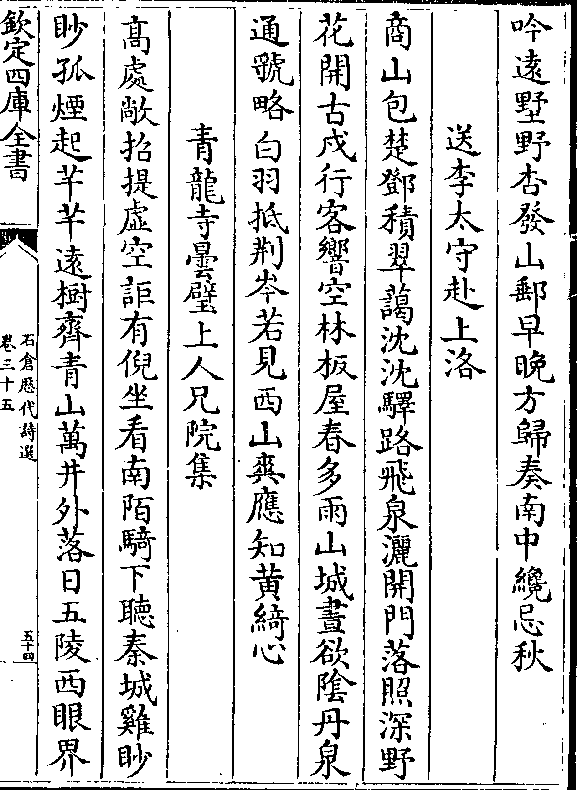 吟遠墅野杏發山郵早晚方歸奏南中纔忌秋
送李太守赴上洛
商山包楚鄧積翠藹沈沈驛路飛泉灑開門落照深野
花開古戍行客響空林板屋春多雨山城晝欲陰丹泉
通號略白羽抵荆岑若見西山爽應知黄綺心
青龍寺曇璧上人兄院集
髙處敞招提虚空詎有倪坐看南陌騎下聽秦城雞眇
眇孤煙起芊芊遠樹齊青山萬井外落日五陵西眼界
欽定四庫全書
石倉歷代詩選
卷三十五
五十四